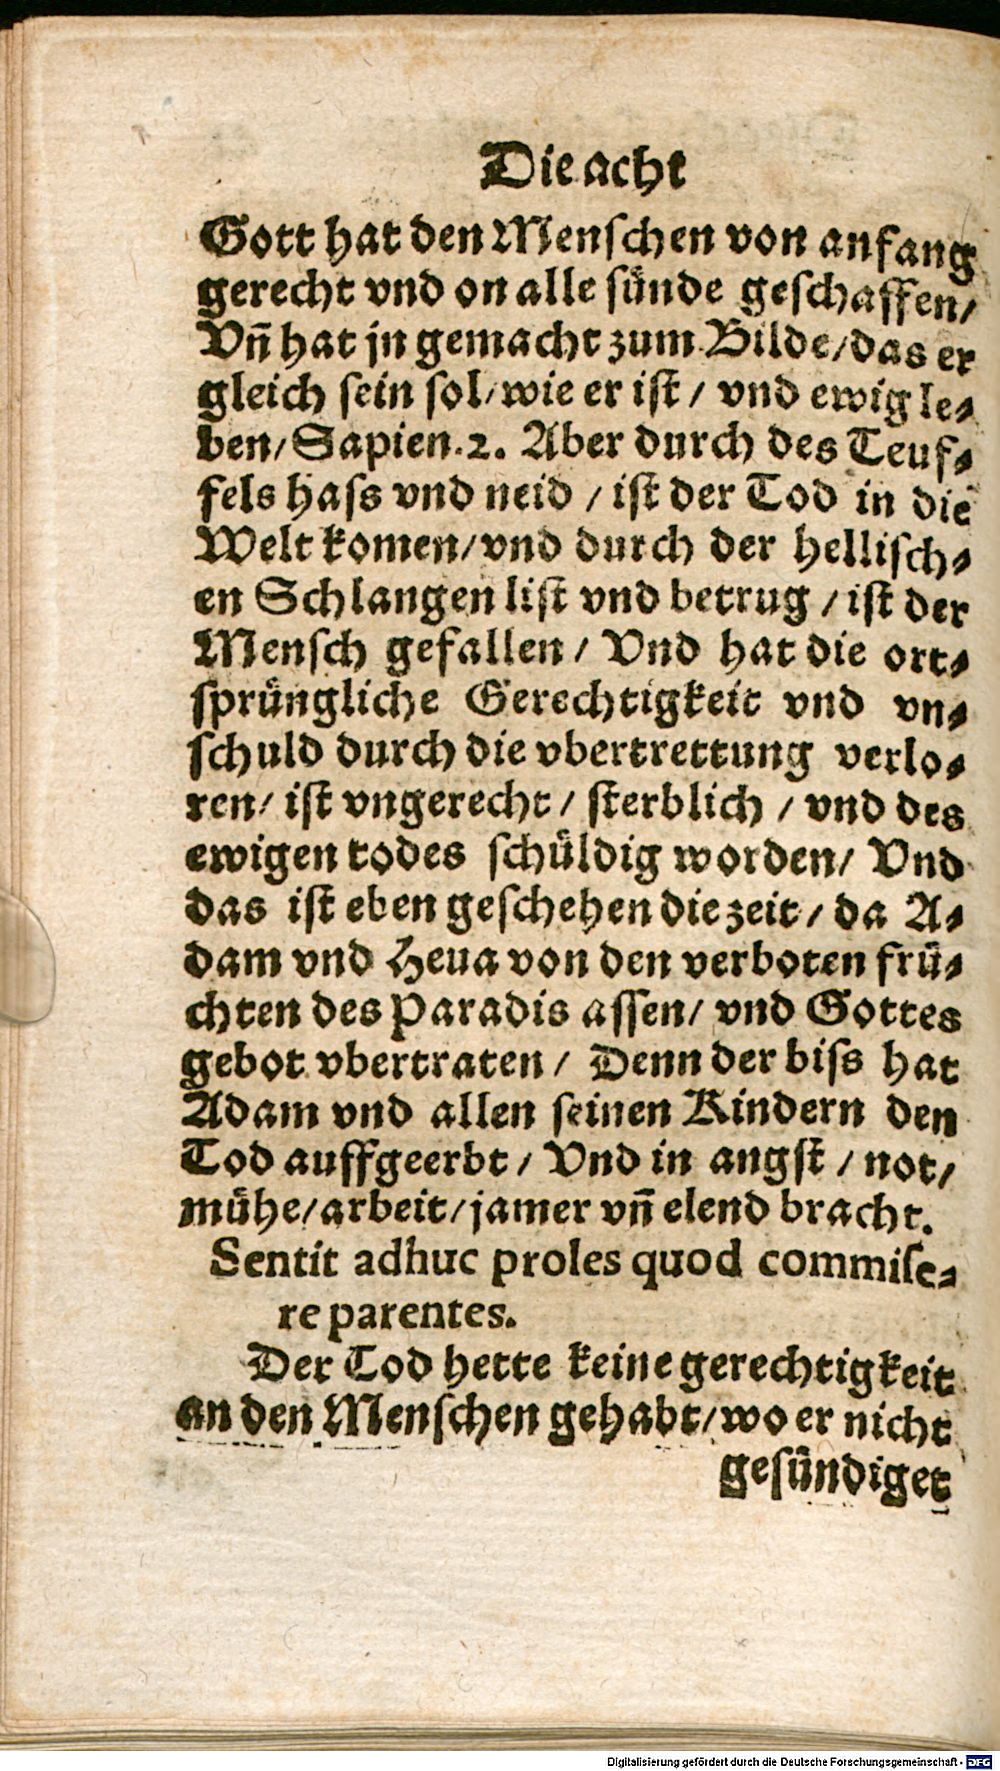 Die acht
Gott hat den Menschen von anfang
gerecht vnd on alle sünde geschaffen/
Vn̄ hat jn gemacht zum Bilde/das er
gleich sein sol/wie er ist/ vnd ewig le⸗
ben/Sapien.2. Aber durch des Teuf⸗
fels hass vnd neid / ist der Tod in die
Welt komen/vnd durch der hellisch⸗
en Schlangen list vnd betrug / ist der
Mensch gefallen/ Vnd hat die ort⸗
sprüngliche Gerechtigkeit vnd vn⸗
schuld durch die vbertrettung verlo⸗
ren/ ist vngerecht/ sterblich / vnd des
ewigen todes schüldig worden/ Vnd
das ist eben geschehen die zeit/ da A⸗
dam vnd Heua von den verboten frü⸗
chten des Paradis assen/ vnd Gottes
gebot vbertraten/ Denn der biss hat
Adam vnd allen seinen Kindern den
Tod auffgeerbt / Vnd in angst / not/
mühe/arbeit/jamer vn̄ elend bracht.
Sentit adhuc proles quod commise⸗
re parentes.
Der Tod hette keine gerechtigkeit
an den Menschen gehabt/wo er nicht
gesündiget
Digitalisierung gefördert durch die Deutsche Forschungsgemeinschaft - DFG